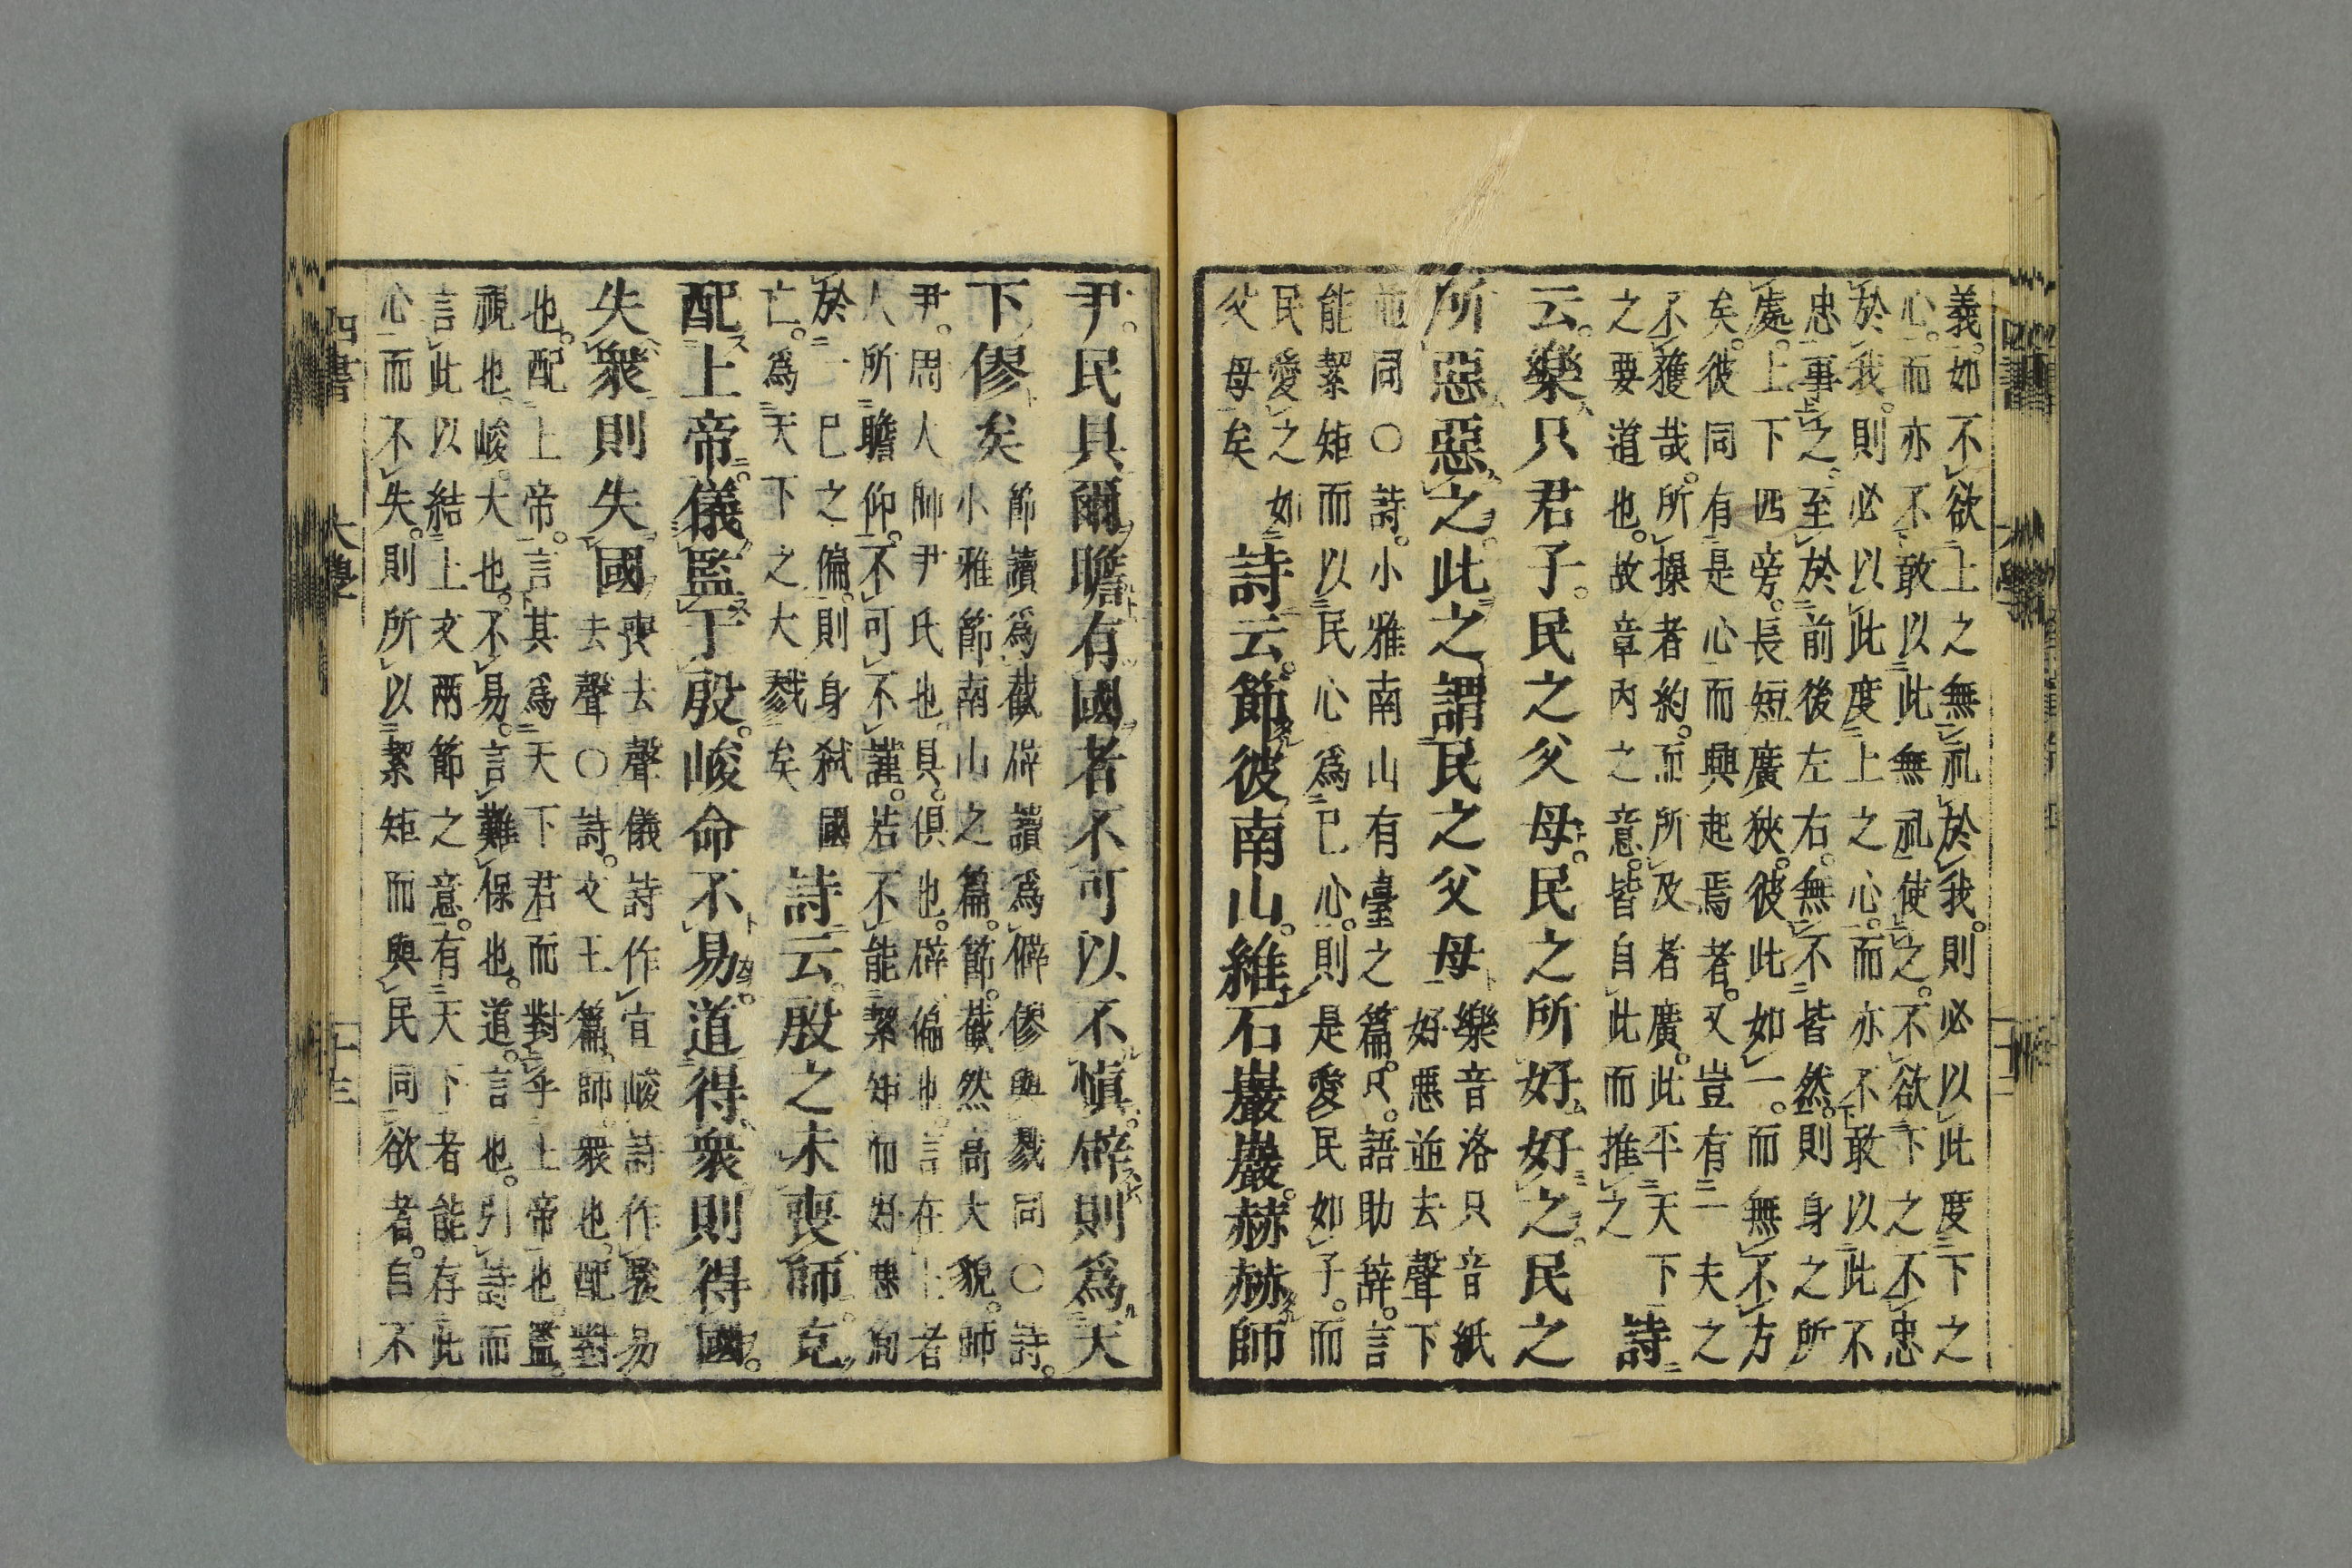 義。如不欲上之無礼於我。則必以此度下之
心。而亦不敢以此無礼使之。不欲下之不忠
於我。則必以此度上之心。而亦不敢以此不
忠事之。至於前後左右。無不皆然。則身之所
處。上下四旁。長短廣狹。彼此如一。而無不方
矣。彼同有是心而興起焉者。又豈有一夫之
不獲哉。所操者約。而所及者廣。此平天下
之要道也。故章內之意。皆自此而推之
詩
云。樂只君子。民之父母。民之所好好之。民之
所惡惡之。此之謂民之父母
樂音洛只音紙
好惡並去聲下
並同○詩。小雅南山有臺之篇。只。語助辭。言
能絜矩而以民心爲己心。則是愛民如子。而
民愛之如
父母矣
詩云。節彼南山。維石巖巖。赫赫師
尹。民具爾瞻。有國者不可以不愼。辟則爲天
下僇矣
節讀爲截辟讀爲僻僇與戮同○詩。
小雅節南山之篇。節。截然高大貌。師
尹。周大師尹氏也。具。俱也。辟。偏也。言在上者
人所瞻仰。不可不謹。若不能絜矩而好惡徇
於一己之偏。則身弑國
亡。爲天下之大戮矣
詩云。殷之未喪師。克
配上帝。儀監于殷。峻命不易。道得衆則得國。
失衆則失國
喪去聲儀詩作宜峻詩作駿易
去聲○詩。文王篇。師。衆也。配。對
也。配上帝。言其爲天下君。而對乎上帝也。監。
視也。峻。大也。不易。言難保也。道。言也。引詩而
言此以結上文兩節之意。有天下者能存此
心而不失。則所以絜矩而與民同欲者。自不
四書 大學 十三